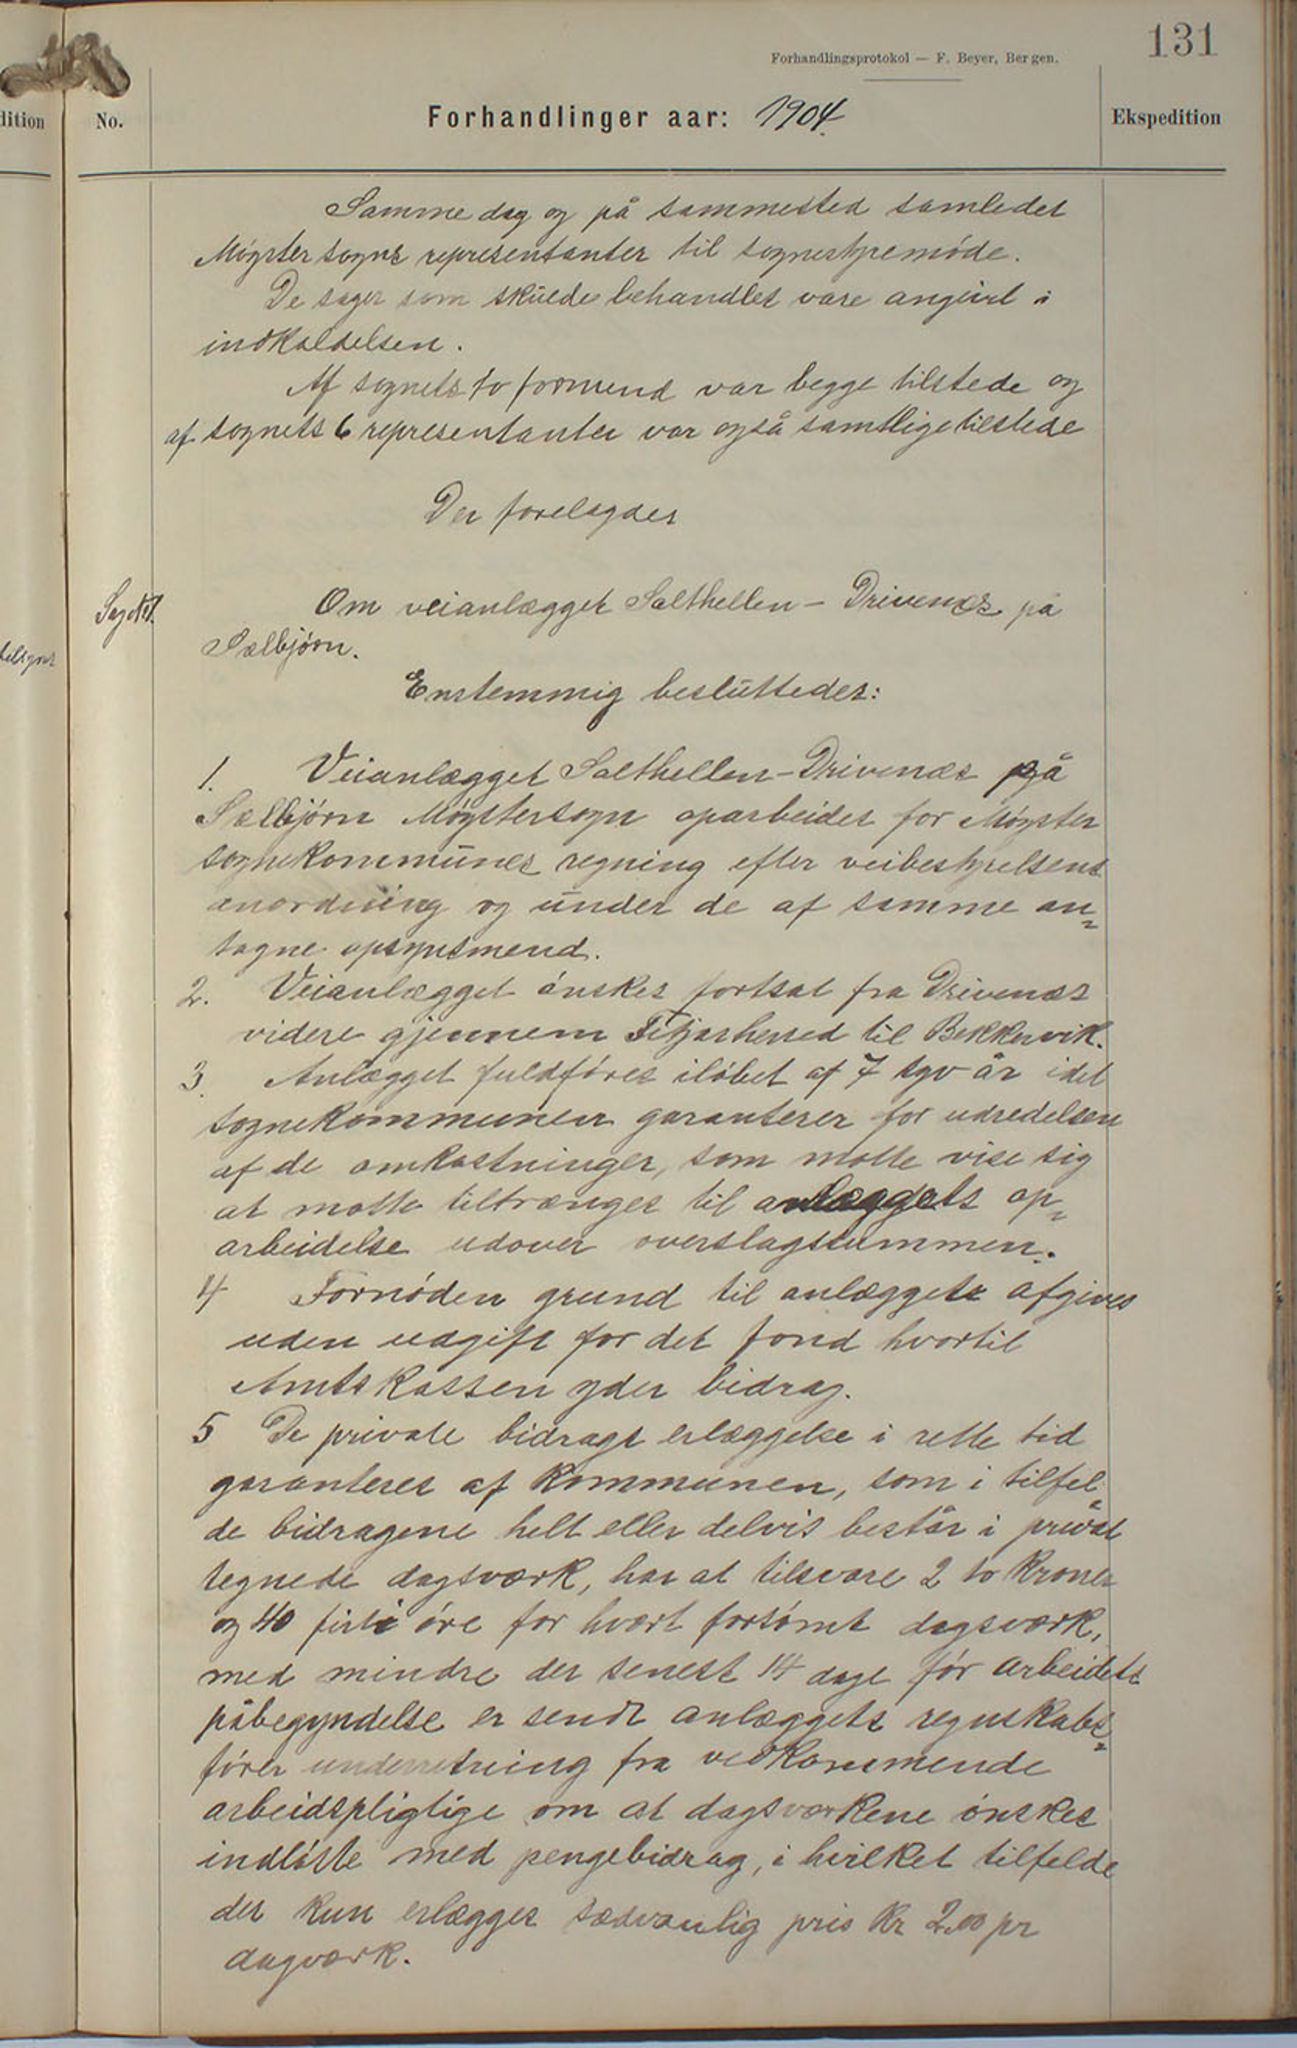 131
Forhandlingsprotokol — F. Beyer, Bergen.
dition
No.
Forhandlinger aar: 1904.
Ekspedition
Samme dag og på sammested samledes
Møgster sogns representanter til sognestyremøde.
De sager som skulde behandles vare angivet i
indkaldelsen.
Af sognets to formend var begge tilstede og
af sognets 6 representanter var også samtlige tilstede
Der forelagdes
Om veianlægget Salthellen - Drivenes på
Selbjørn.
Enstemmig besluttedes:
1. Veianlægget Salthellen - Drivenes på
Selbjørn Møgstersogn oparbeides for Møgster
sognekommunes regning efter veibestyrelsens
anordning og under de af samme an=
tagne opsynsmend.
2. Veianlægget ønskes fortsat fra Drivenes
videre gjennem Fitjarherred til Bekkervik.
3. Anlægget fuldføres iløbet af 7 syv år idet
sognekommunen garanterer for udredelsen
af de omkostninger, som motte vise sig
at motte tiltrænges til anlæggets op=
arbeidelse udover overslagssummen.
4 Fornøden grund til anlæggets afgives
uden udgift for det fond hvortil
Amtskassen yder bidrag.
5 De private bidrags erlæggelse i rette tid
garanteres af kommunen, som i tilfel
de bidragene helt eller delvis består i privat
tegnede dagsværk, har at tilsvare 2 to kroner
og 40 firti øre for hvert forsømt dagsværk,
med mindre der senest 14 dage før arbeidets
påbegyndelse er sendt anlæggets regnskabs=
fører underretning fra vedkommende
arbeidspligtige om at dagsværkene ønskes
indløste med pengebidrag, i hvilket tilfelde
der kun erlægges sædvanlig pris kr 2.00 pr
dagværk.